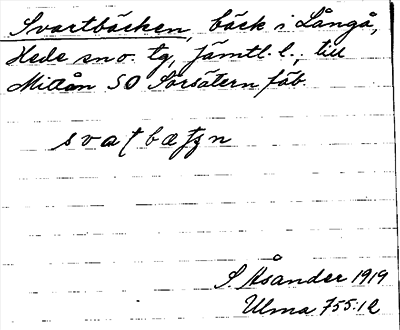 Svartbäcken, bäck i Långå,
Hede sn o. tg, Jämtl. l., till
Mittån SO Sörsätern fäb.
S. Åsander 1919
Ulma 755:12